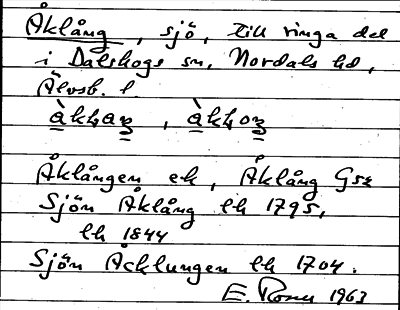 Åklång, sjö, till ringa del
i Dalskogs sn, Nordals hd,
Älvsb. l.
Åklången ek, Åklång Gsk
Sjön Åklång lk 1795,
lk 1844
Sjön Åcklungen lk 1704.
E. 1963